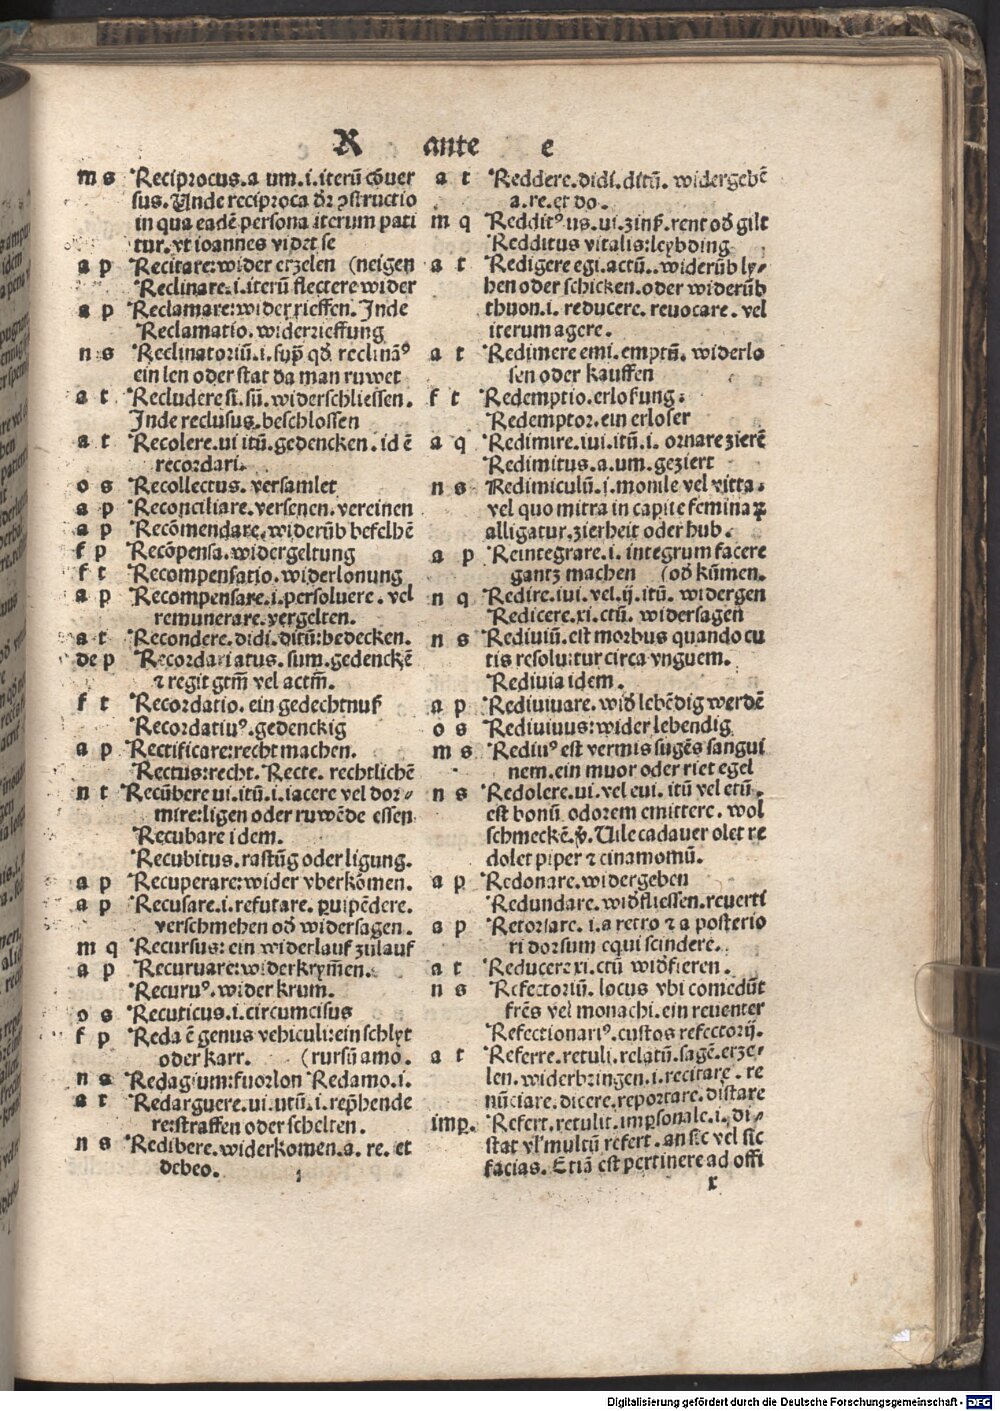 R ante e
m s Reciprocus.a um.i.iterū cōuer
sus.Unde reciproca dr̄ ꝯstructio
in qua eadē persona iterum pati
tur.vt ioannes videt se
a p Recitare:wider erzelen (neigen
Reclinare.i.iterū flectere wider
a p Reclamare:widerrieffen. Inde
Reclamatio.widerrieffung
n s Reclinatoriū.i.sup̄ qd̄ reclināꝰ
ein len oder stat da man ruwet
a t Recludere si.sū.widerschliessen.
Inde reclusus.beschlossen
a t Recolere.ui itū.gedencken.id ē
recordari.
o s Recollectus.versamlet
a p Reconciliare.versenen.vereinen
a p Recōmendare.widerūb befelhē
f p Recōpensa.widergeltung
f t Recompensatio.widerlonung
a p Recompensare.i.persoluere.vel
remunerare.vergelten.
a t Recondere.didi.ditū:bedecken.
de p Recordari atus.sum.gedenckē
⁊ regit gtm̄ vel actm̄.
f t Recordatio.ein gedechtnuß
Recordatiuꝰ.gedenckig
a p Rectificare:recht machen.
Rectus:recht.Recte.rechtlichē
n t Recūbere ui.itū.i.iacere vel dor⸗
mire:ligen oder ruwēde essen
Recubare idem.
Recubitus.rastūg oder ligung.
a p Recuperare:wider vberkōmen.
a p Recusare.i.refutare.ꝑuipēdere.
verschmehen od̄ widersagen.
m q Recursus:ein widerlauf zůlauf
a p Recuruare:widerkrym̄en.
Recuruꝰ.wider krum.
o s Recuticus.i.circumcisus
f p Reda ē genus vehiculi:ein schlyt
oder karr. (rursū amo.
n s Redagium:fuorlon Redamo.i.
a t Redarguere.ui.utū.i.rep̄hende
re:straffen oder schelten.
n s Redibere.widerkomen.a.re.et
debeo.
a t Reddere.didi.ditū.widergebē
a.re.et do.
m q Redditꝰ us.ui.zinß.rent od̄ gilt
Redditus vitalis:leybding
a t Redigere egi.actū..widerūb ly⸗
hen oder schicken.oder widerūb
thuon.i.reducere.reuocare.vel
iterum agere.
a t Redimere emi.emptū.widerlo
sen oder kauffen
f t Redemptio.erlosung.
Redemptor.ein erloser
a q Redimire.iui.itū.i.ornare zierē
Redimitus.a.um.geziert
n s Redimiculū.i.monile vel vitta.
vel quo mitra in capite feminaꝝ
alligatur.zierheit oder hub.
a p Reintegrare.i.integrum facere
gantz machen (od̄ kūmen.
n q Redire.iui.vel.ij.itū.widergen
Redicere.xi.ctū.widersagen
n s Rediuiū.est morbus quando cu
tis resoluitur circa vnguem.
Rediuia idem.
a p Rediuiuare.wid̄ lebēdig werdē
o s Rediuiuus:wider lebendig
m s Rediuꝰ est vermis sugēs sangui
nem.ein muor oder riet egel
n s Redolere.ui.vel eui.itū vel etū.
est bonū odorem emittere.wol
schmeckē.ꝟ.Uile cadauer olet re
dolet piper ⁊ cinamomū.
a p Redonare.widergeben
Redundare.wid̄fliessen.reuerti
a p Retorsare.i.a retro ⁊ a posterio
ri dorsum equi scindere.
a t Reducere xi.ctū wid̄fieren.
n s Refectoriū.locus vbi comedūt
frēs vel monachi.ein reuenter
Refectionariꝰ.custos refectorij.
a t Referre.retuli.relatū.sagē.erze⸗
len.widerbringen.i.recitare.re
nūciare.dicere.reportare.distare
imꝑ. Refert.retulit.imꝑsonale.i.di⸗
stat vl̓ multū refert.an sic vel sic
facias.Etiā est pertinere ad offi
x
Digitalisierung gefördert durch die Deutsche Forschungsgemeinschaft - DFG